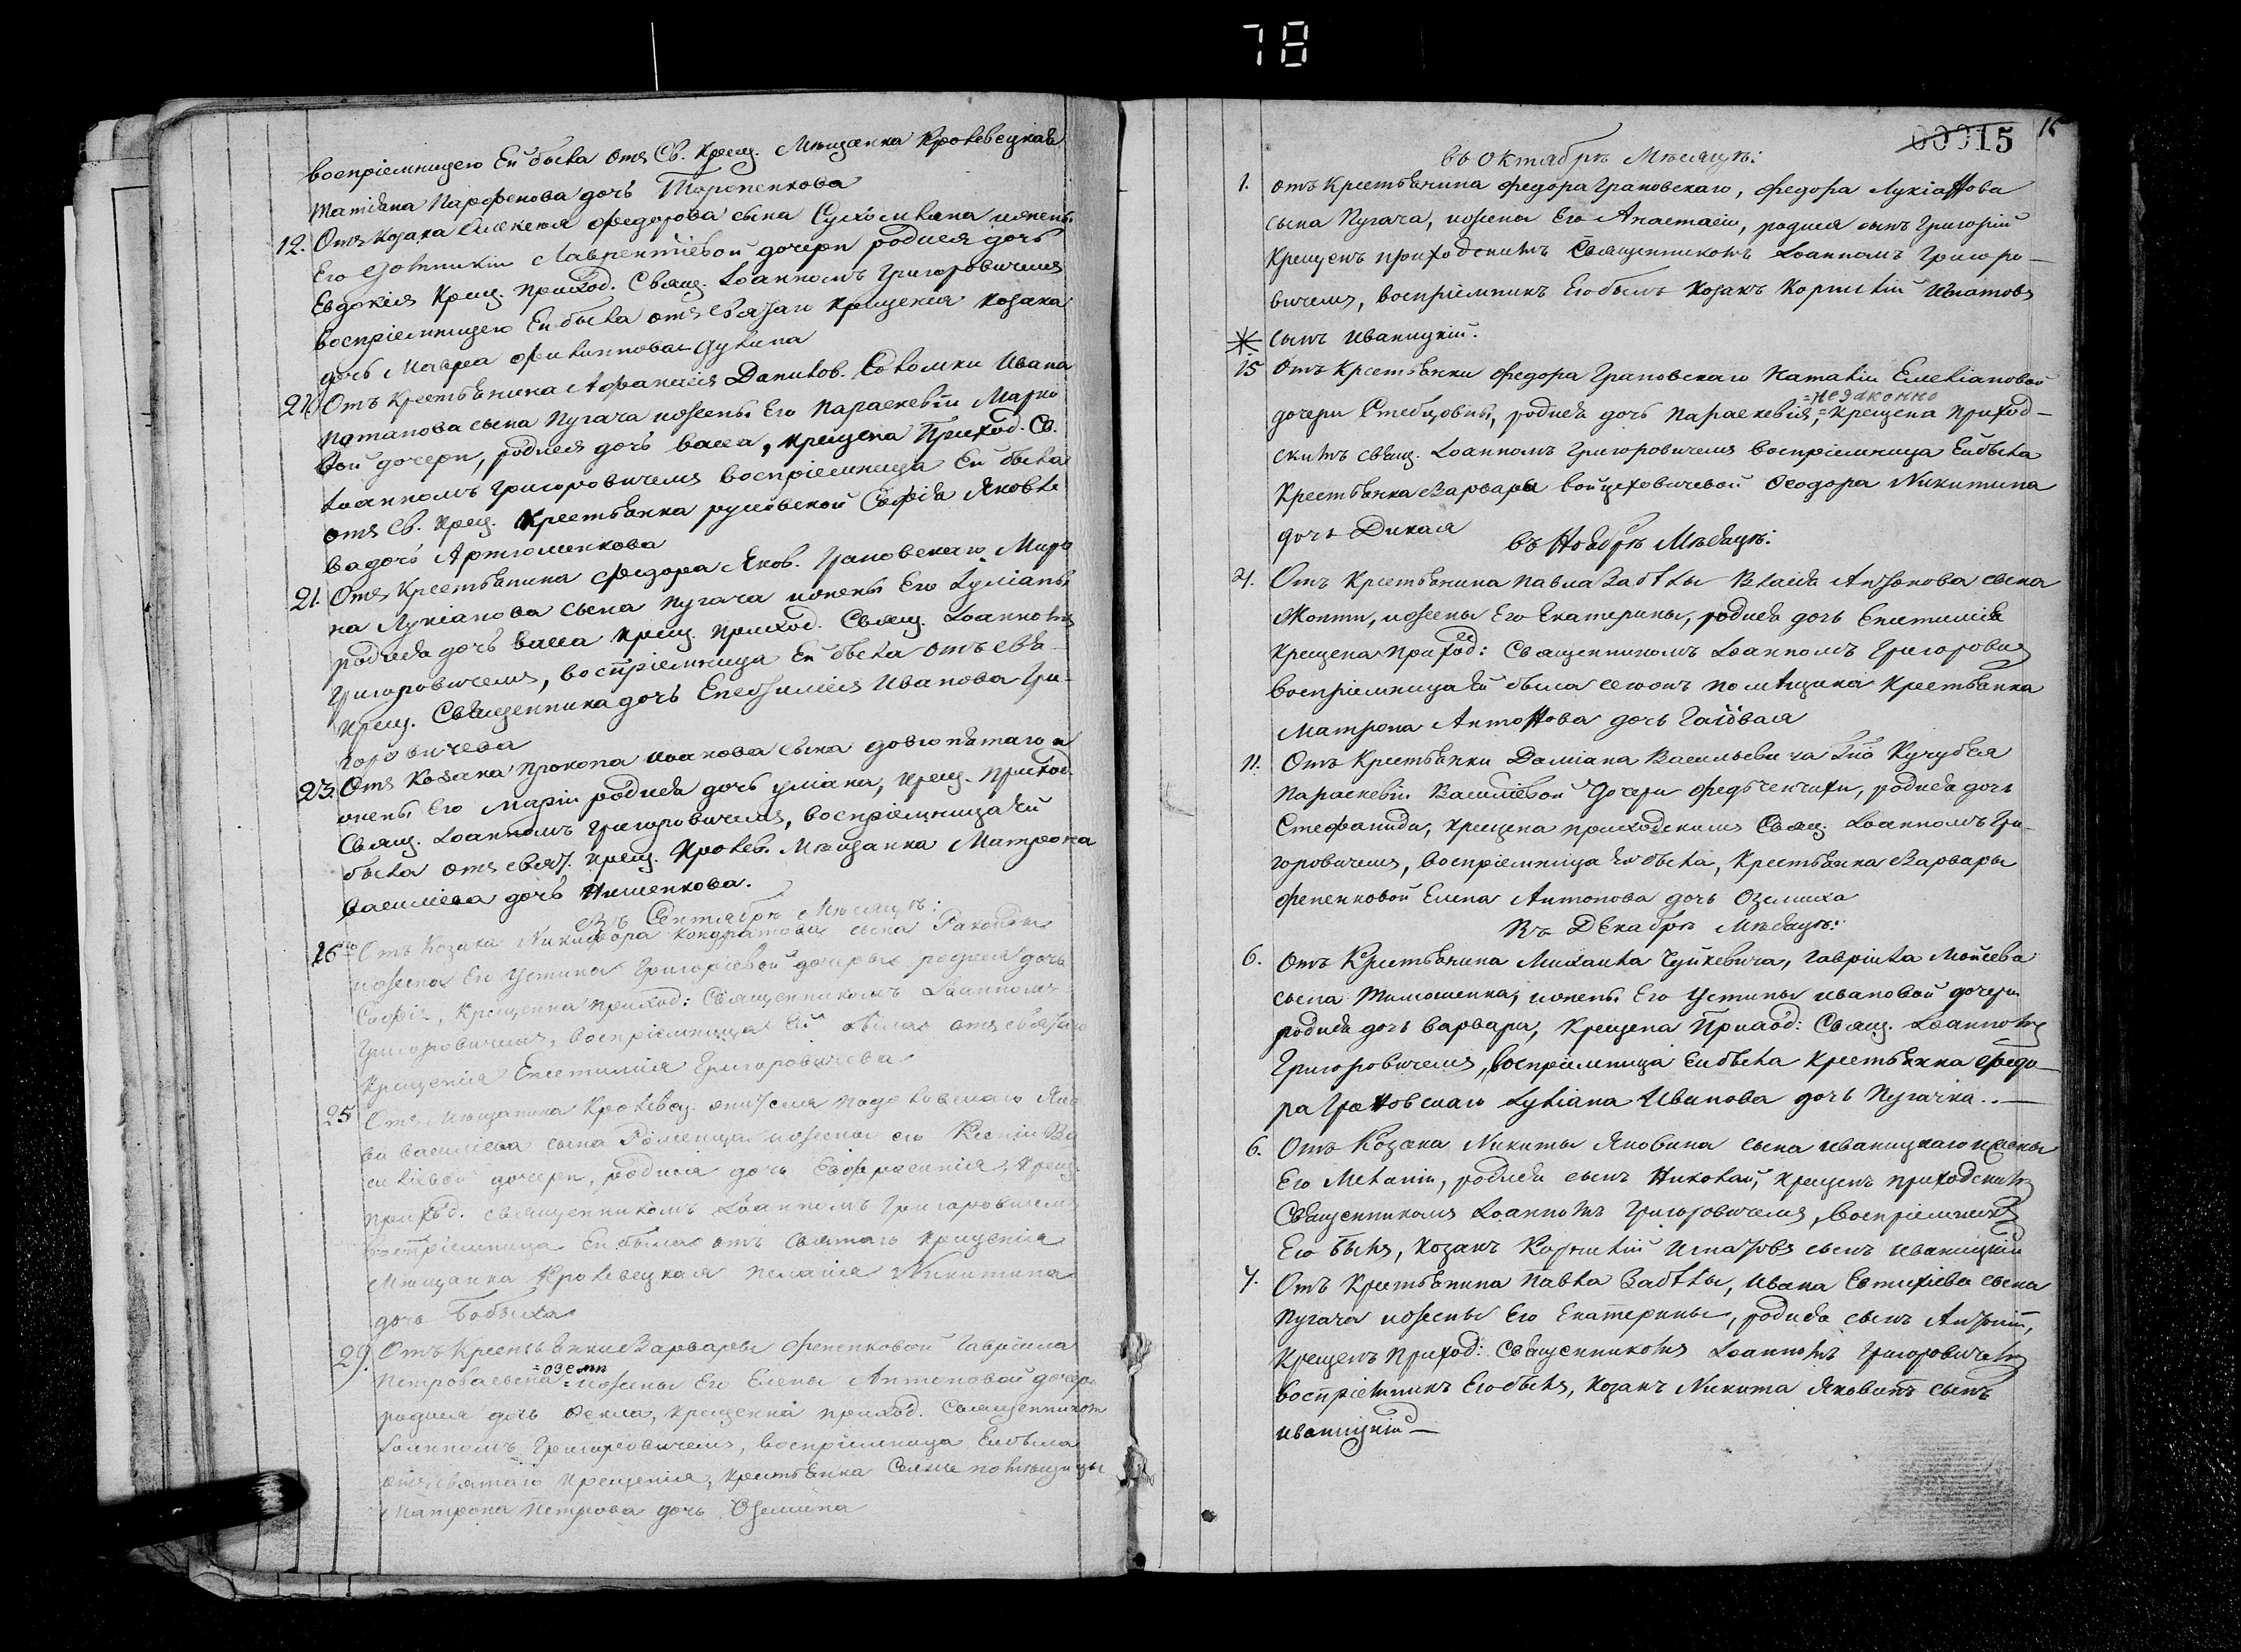 78
воспріемницею Ей была отъ Св. Крещ. Мѣщанка Кролевецкая
Татіяна Парфенова дочь
12. Отъ Козака Алексея Федорова сына и жены
Его Лаврентіевой дочери родися дочь
Евдокія Крещ. приход. Свящ. Іоанномъ Григоровичемъ
воспріемницею Ей была отъ святаго крещенія козака
дочь Мавра Филиппова
Отъ Крестьянина Афанасія Данилов. Соломки Ивана
Потапова сына Пугача и жены Его Параскевіи Марко
вой дочери, родися дочь васса, крещена Приход. Св.
Іоанномъ Григоровичемъ воспріемница Ей была
отъ Св. Крещ. Крестьянка Софія Яковле
ва дочь Артюшенкова
21. Отъ Крестьянина Федора Яков. Грановскаго Миро
на Лукіанова сына Пугача и жены Его Іуліаны
родися дочь васса крещ. приход. Свящ. Іоанномъ
Григоровичемъ, воспріемница Ей была отъ свя-
крещ. Священника дочь Епистимія Иванова Гри-
горовичева
23. Отъ Козака Прокопа Иванова сына довгопятаго и
жены Его Маріи родися дочь уліана, крещ. приход
Свящ. Іоанномъ Григоровичемъ, воспріемница Ей
была отъ свят. крещ. Кролев. Мѣщанка Матрона
василіева дочь
Въ Сентябрѣ Мѣсяцѣ:
16 Отъ Козака Никифора Кондратова сына
и жены Его Устины Григоріевой дочери родися дочь
Софія, Крещенна приход: Священникомъ Іоанномъ
Григоровичемъ, воспріемница Ей была отъ святаго
Крещенія Епистимія Григоровичева
25 Отъ Мѣщанина Кролевец.
василіева сына и жены его Ксеніи Ва
силіевой дочери, родися дочь Евфросинія, Крещ.
приход. священникомъ Іоанномъ Григоровичемъ
воспріемница Ей была отъ святаго крещенія
Мѣщанка Кролевецкая Пелагія Никитина
дочь
29. Отъ Крестьянки Варвары Фененковой Гавріила
=оземи
Петрова сына = и жены Его Елены Антоновой дочери
родися дочь Фекла, крещенна приход. Священником
Іоанномъ Григоровичемъ, воспріемница Ей была
отъ святаго крещенія, крестьянка помѣщицы
Матрона Петрова дочь Озимина
00015 15
въ Октябрѣ Мѣсяцѣ:
1. отъ Крестьянина Федора Грановскаго, Федора Лукіанова
сына Пугача, и жены Его Анастасіи, родися сынъ Григорій
Крещенъ приходскимъ Священникомъ Іоанномъ Григоро-
вичемъ, воспріемникъ Его былъ козакъ Корнилій Игнатовъ
сынъ иваницкій.
15 Отъ Крестьянки Федора Грановскаго Наталіи Емеліановой
=незаконно
дочери Стебцовны, родися дочь Параскевія, = Крещена Приход-
скимъ свящ. Іоанномъ Григоровичемъ воспріемница Ей была
Крестьянка Варвары Войцеховичевой Феодора Никитина
дочь Дикая
въ Ноябрѣ Мѣсяцѣ:
21. Отъ Крестьянина Павла Забѣлы Власа Антонова сына
и жены Его Екатерины, родися дочь Епистимія
Крещена Приход: Священникомъ Іоанномъ Григорови
воспріемница Ей была помѣщика Крестьянка
Матрона Антонова дочь
11. Отъ Крестьянки Даміана Васильевича Кучубея
Параскевіи Василіевой дочери Федченчихи, родися дочь
Стефанида, крещена приходскимъ Свящ. Іоанномъ Гри-
горовичемъ, воспріемница Ей была, Крестьянка Варвары
Фененковой Елена Антонова дочь Озимиха
Въ Декабрѣ Мѣсяцѣ:
6. отъ Крестьянина Михаила Чуйкевича, Гавріила Мойсеева
сына Тимошенка, и жены Его Устины ивановой дочери
родися дочь варвара, Крещена Приход: Свящ. Іоанномъ
Григоровичемъ, воспріемница Ей была Крестьянка Федо-
ра Грановскаго Іуліана Иванова дочь Пугачка..—
6. Отъ Козака Никиты Яковина сына иваницкаго и жены
Его Меланіи, родися сынъ Николай, Крещенъ приходскимъ
Священникомъ Іоанномъ Григоровичемъ, воспріемникъ
Его былъ, козакъ Корнилій Игнатовъ сынъ иваницкій
7. Отъ Крестьянина Павла Забѣлы, Ивана Евтихіева сына
Пугача и жены Его Екатерины, родися сынъ Антоній,
Крещенъ Приход: Священникомъ Іоанномъ Григоровичемъ
воспріемникъ Его былъ, козакъ Никита Яковинъ сынъ
иваницкій —